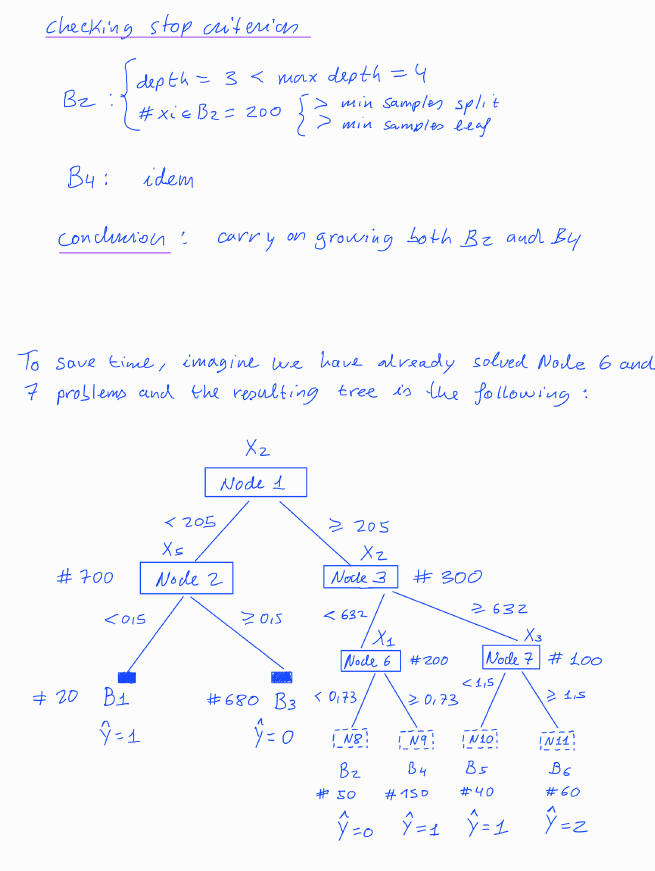 checking stop criterion
B2 : { depth = 3 < max depth = 4
# xi ∈ B2 = 200 { > min samples split
> min samples leaf
B4 : idem
conclusion : carry on growing both B2 and B4
To save time, imagine we have already solved Node 6 and
7 problems and the resulting tree is the following :
X2
Node 1
< 205 ≥ 205
X5 X2
# 700 Node 2 Node 3 # 300
< 0,5 ≥ 0,5 < 632 ≥ 632
X1 X3
Node 6 # 200 Node 7 # 100
# 20 B1 # 680 B3 < 0,73 ≥ 0,73 < 1,5 ≥ 1,5
Ŷ = 1 Ŷ = 0 N8 N9 N10 N11
B2 B4 B5 B6
# 50 # 150 # 40 # 60
Ŷ = 0 Ŷ = 1 Ŷ = 1 Ŷ = 2